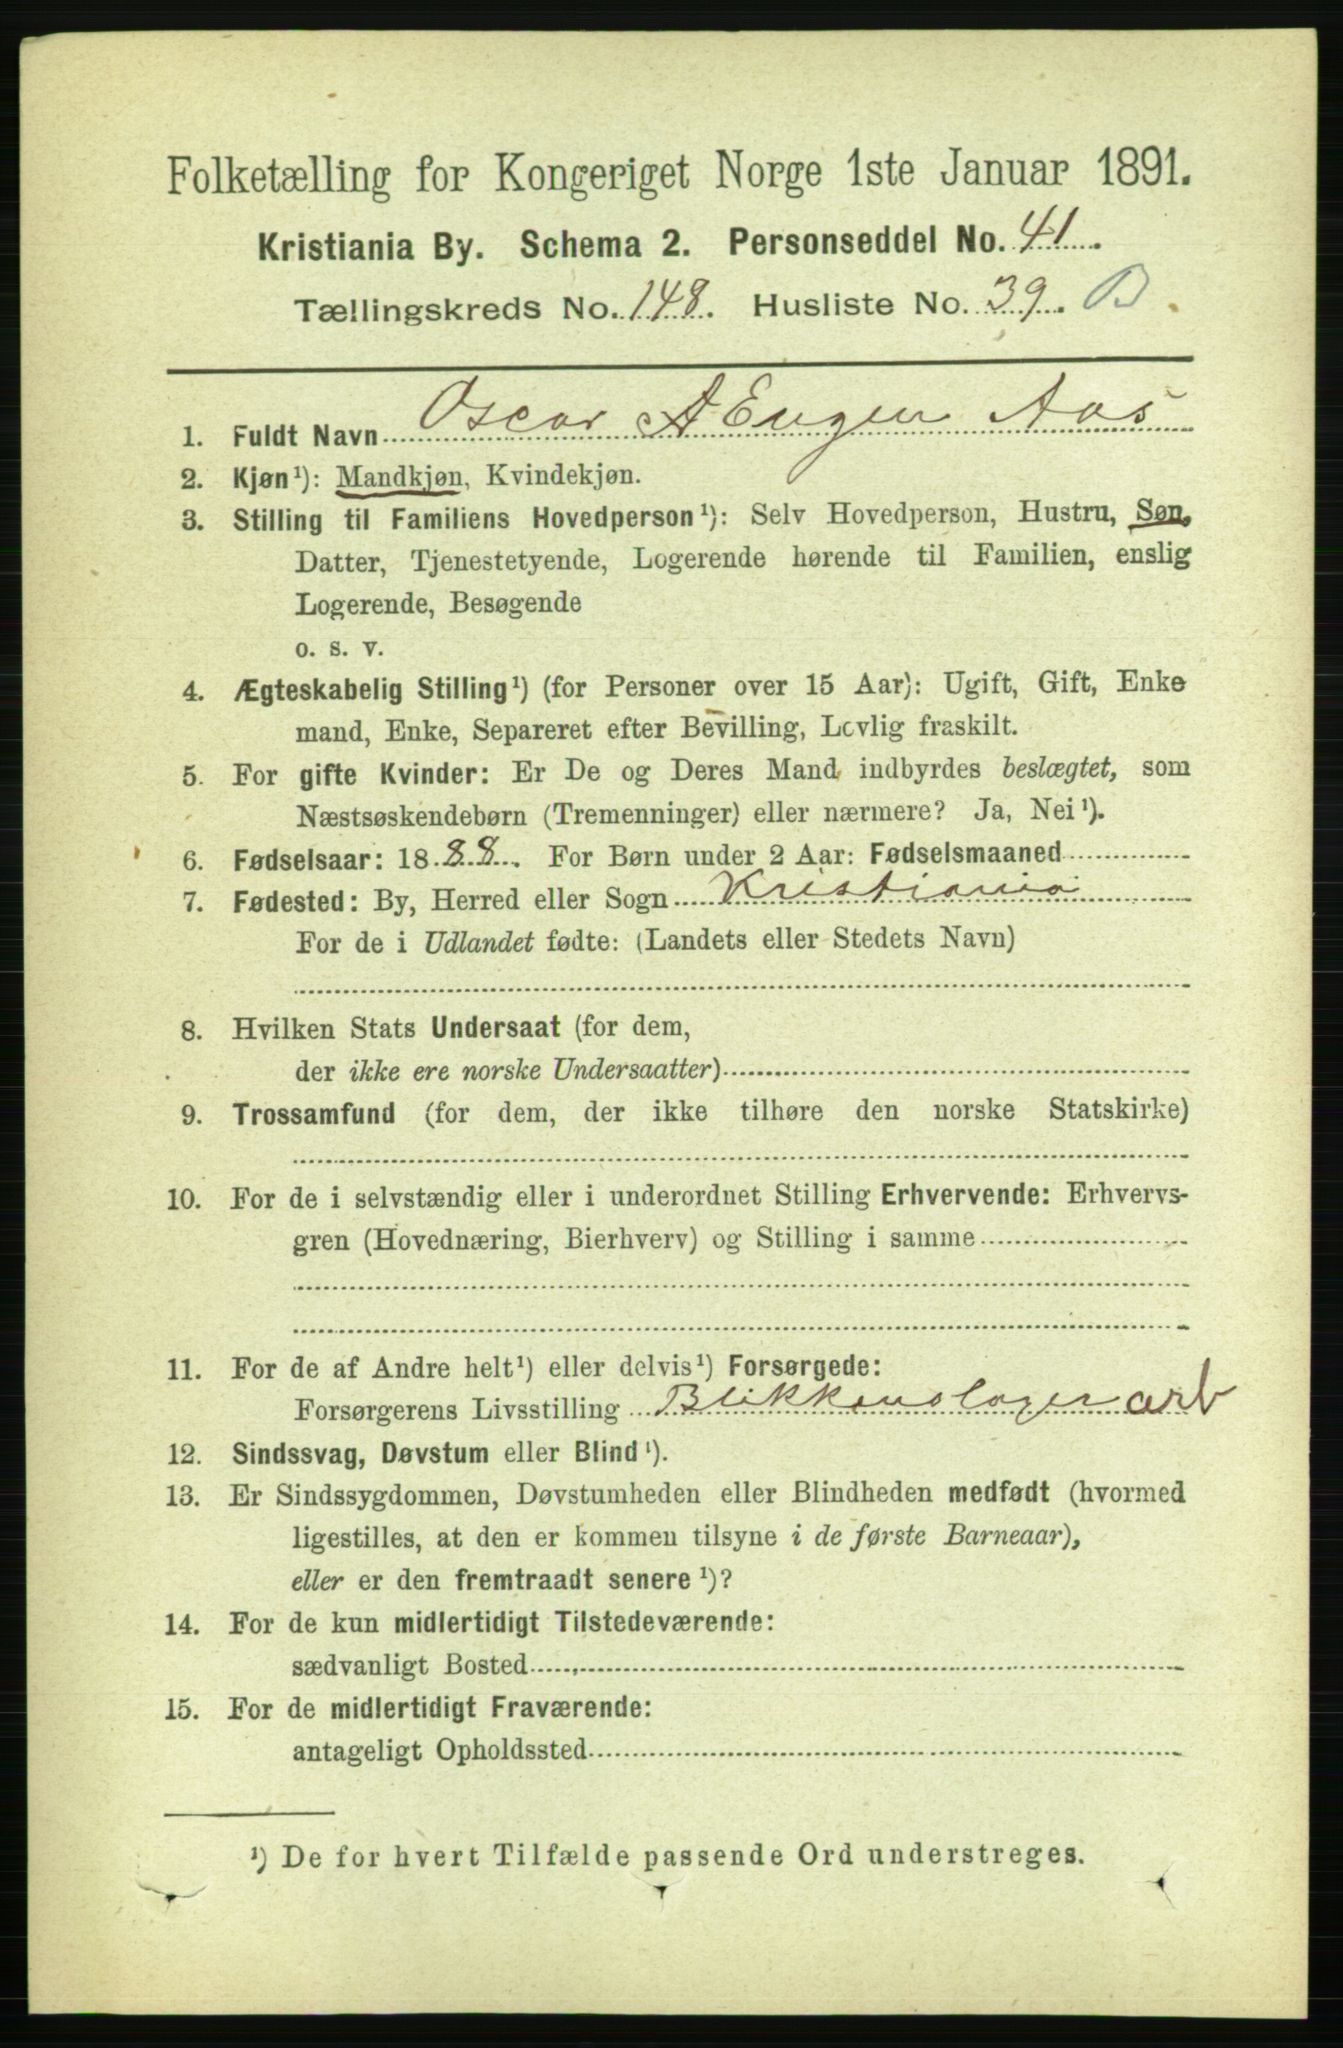 Folketælling for Kongeriget Norge 1ste Januar 1891.
Kristiania By. Schema 2. Personseddel No. 41.
Tællingskreds No. 148. Husliste No. 39. B.
1. Fuldt Navn Oscar A Eugen Aas
2. Kjøn¹): Mandkjøn, Kvindekjøn.
3. Stilling til Familiens Hovedperson¹): Selv Hovedperson, Hustru, Søn,
Datter, Tjenestetyende, Logerende hørende til Familien, enslig
Logerende, Besøgende
o. s. v.
4. Ægteskabelig Stilling¹) (for Personer over 15 Aar): Ugift, Gift, Enke
mand, Enke, Separeret efter Bevilling, Lovlig fraskilt.
5. For gifte Kvinder: Er De og Deres Mand indbyrdes beslægtet, som
Næstsøskendebørn (Tremenninger) eller nærmere? Ja, Nei¹).
6. Fødselsaar: 1888. For Børn under 2 Aar: Fødselsmaaned
7. Fødested: By, Herred eller Sogn Kristiania
For de i Udlandet fødte: (Landets eller Stedets Navn)
8. Hvilken Stats Undersaat (for dem,
der ikke ere norske Undersaatter)
9. Trossamfund (for dem, der ikke tilhøre den norske Statskirke)
10. For de i selvstændig eller i underordnet Stilling Erhvervende: Erhvervs-
gren (Hovednæring, Bierhverv) og Stilling i samme
11. For de af Andre helt¹) eller delvis¹) Forsørgede:
Forsørgerens Livsstilling Blikkenslager arb
12. Sindssvag, Døvstum eller Blind¹).
13. Er Sindssygdommen, Døvstumheden eller Blindheden medfødt (hvormed
ligestilles, at den er kommen tilsyne i de første Barneaar),
eller er den fremtraadt senere¹)?
14. For de kun midlertidigt Tilstedeværende:
sædvanligt Bosted
15. For de midlertidigt Fraværende:
antageligt Opholdssted
¹) De for hvert Tilfælde passende Ord understreges.